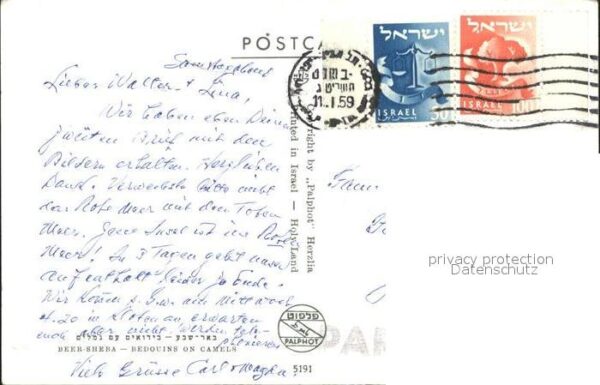 POSTCA
Samstagabend
Lieber Walter + Lina,
Wir haben eben Deinen
zweiten Brief mit den
Bildern erhalten. Herzlichen
Dank. Verwechsle bitte nicht
das Rote Meer mit dem Toten
Meer. Jene Insel ist im Roten
Meer! In 3 Tagen geht unser
Aufenthalt leider zu Ende.
Wir kommen am Mittwoch
in Kloten an, erwarten
euch aber nicht. Werden tele-
phonieren
Viele Grüsse Carl
באר-שבע – בידואים עם גמלים
BEER-SHEBA – BEDOUINS ON CAMELS
5191
פלפוט
PALPHOT
Copyright by „Palphot" Herzlia
Printed in Israel – Holy Land
11.1.59
ישראל
ISRAEL
50
ישראל
ISRAEL
100
Fam
privacy protection
Datenschutz
PAR